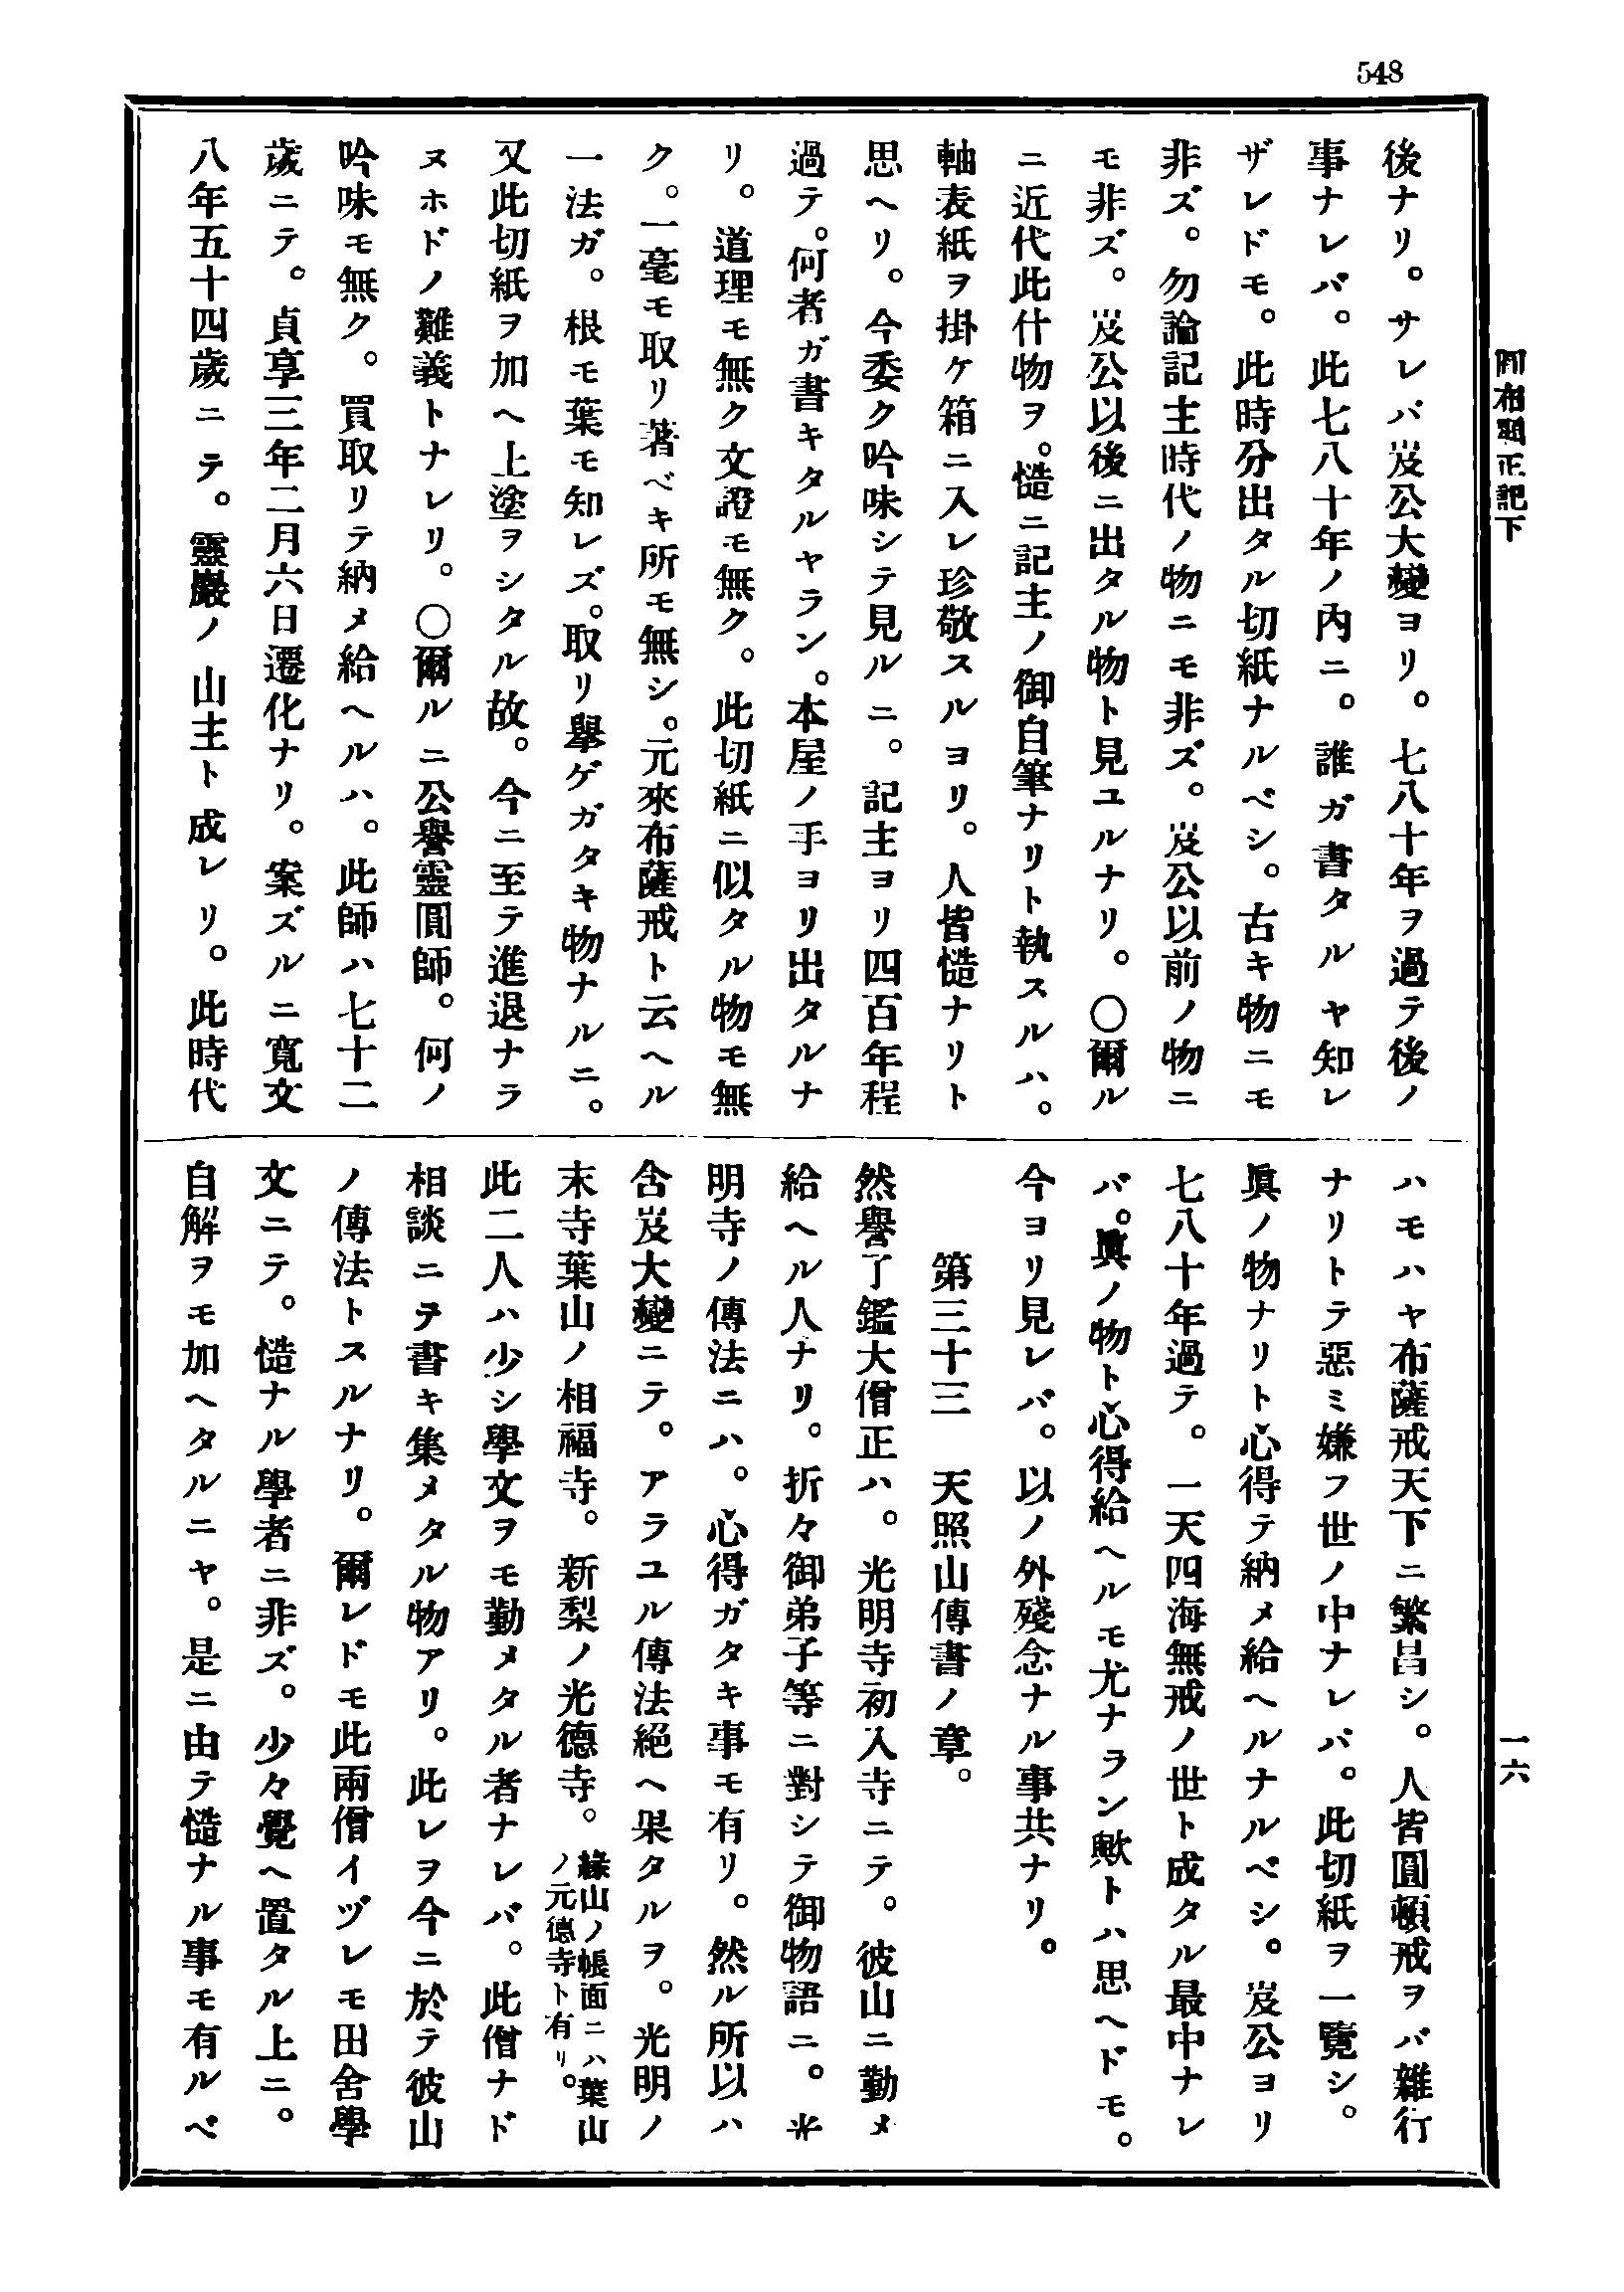 548
後ナリ。サレバ岌公大變ヨリ。七八十年ヲ過テ後ノ
事ナレバ。此七八十年ノ內ニ。誰ガ書タルヤ知レ
ザレドモ。此時分出タル切紙ナルベシ。古キ物ニモ
非ズ。勿論記主時代ノ物ニモ非ズ。岌公以前ノ物ニ
モ非ズ。岌公以後ニ出タル物ト見ユルナリ。〇爾ル
ニ近代此什物ヲ。慥ニ記主ノ御自筆ナリト執スルハ。
軸表紙ヲ掛ケ箱ニ入レ珍敬スルヨリ。人皆慥ナリト
思ヘリ。今委ク吟味シテ見ルニ。記主ヨリ四百年程
過テ。何者ガ書キタルヤラン。本屋ノ手ヨリ出タルナ
リ。道理モ無ク文證モ無ク。此切紙ニ似タル物モ無
ク。一毫モ取リ著ベキ所モ無シ。元來布薩戒ト云ヘル
一法ガ。根モ葉モ知レズ。取リ擧ゲガタキ物ナルニ。
又此切紙ヲ加ヘ上塗ヲシタル故。今ニ至テ進退ナラ
ヌホドノ難義トナレリ。〇爾ルニ公譽靈圓師。何ノ
吟味モ無ク。買取リテ納メ給ヘルハ。此師ハ七十二
歲ニテ。貞享三年二月六日遷化ナリ。案ズルニ寬文
八年五十四歲ニテ。靈巖ノ山主ト成レリ。此時代
ハモハヤ布薩戒天下ニ繁昌シ。人皆圓頓戒ヲバ雜行
ナリトテ惡ミ嫌フ世ノ中ナレバ。此切紙ヲ一覽シ。
眞ノ物ナリト心得テ納メ給ヘルナルベシ。岌公ヨリ
七八十年過テ。一天四海無戒ノ世ト成タル最中ナレ
バ。眞ノ物ト心得給ヘルモ尤ナラン歟トハ思ヘドモ。
今ヨリ見レバ。以ノ外殘念ナル事共ナリ。
第三十三　天照山傳書ノ章。
然譽了鑑大僧正ハ。光明寺初入寺ニテ。彼山ニ勤メ
給ヘル人ナリ。折々御弟子等ニ對シテ御物語ニ。光
明寺ノ傳法ニハ。心得ガタキ事モ有リ。然ル所以ハ
含岌大變ニテ。アラユル傳法絕ヘ果タルヲ。光明ノ
末寺葉山ノ相福寺。新梨ノ光德寺。緣山ノ帳面ニハ葉山
ノ元德寺ト有リ。
此二人ハ少シ學文ヲモ勤メタル者ナレバ。此僧ナド
相談ニテ書キ集メタル物アリ。此レヲ今ニ於テ彼山
ノ傳法トスルナリ。爾レドモ此兩僧イヅレモ田舍學
文ニテ。慥ナル學者ニ非ズ。少々覺ヘ置タル上ニ。
自解ヲモ加ヘタルニヤ。是ニ由テ慥ナル事モ有ルベ
一六